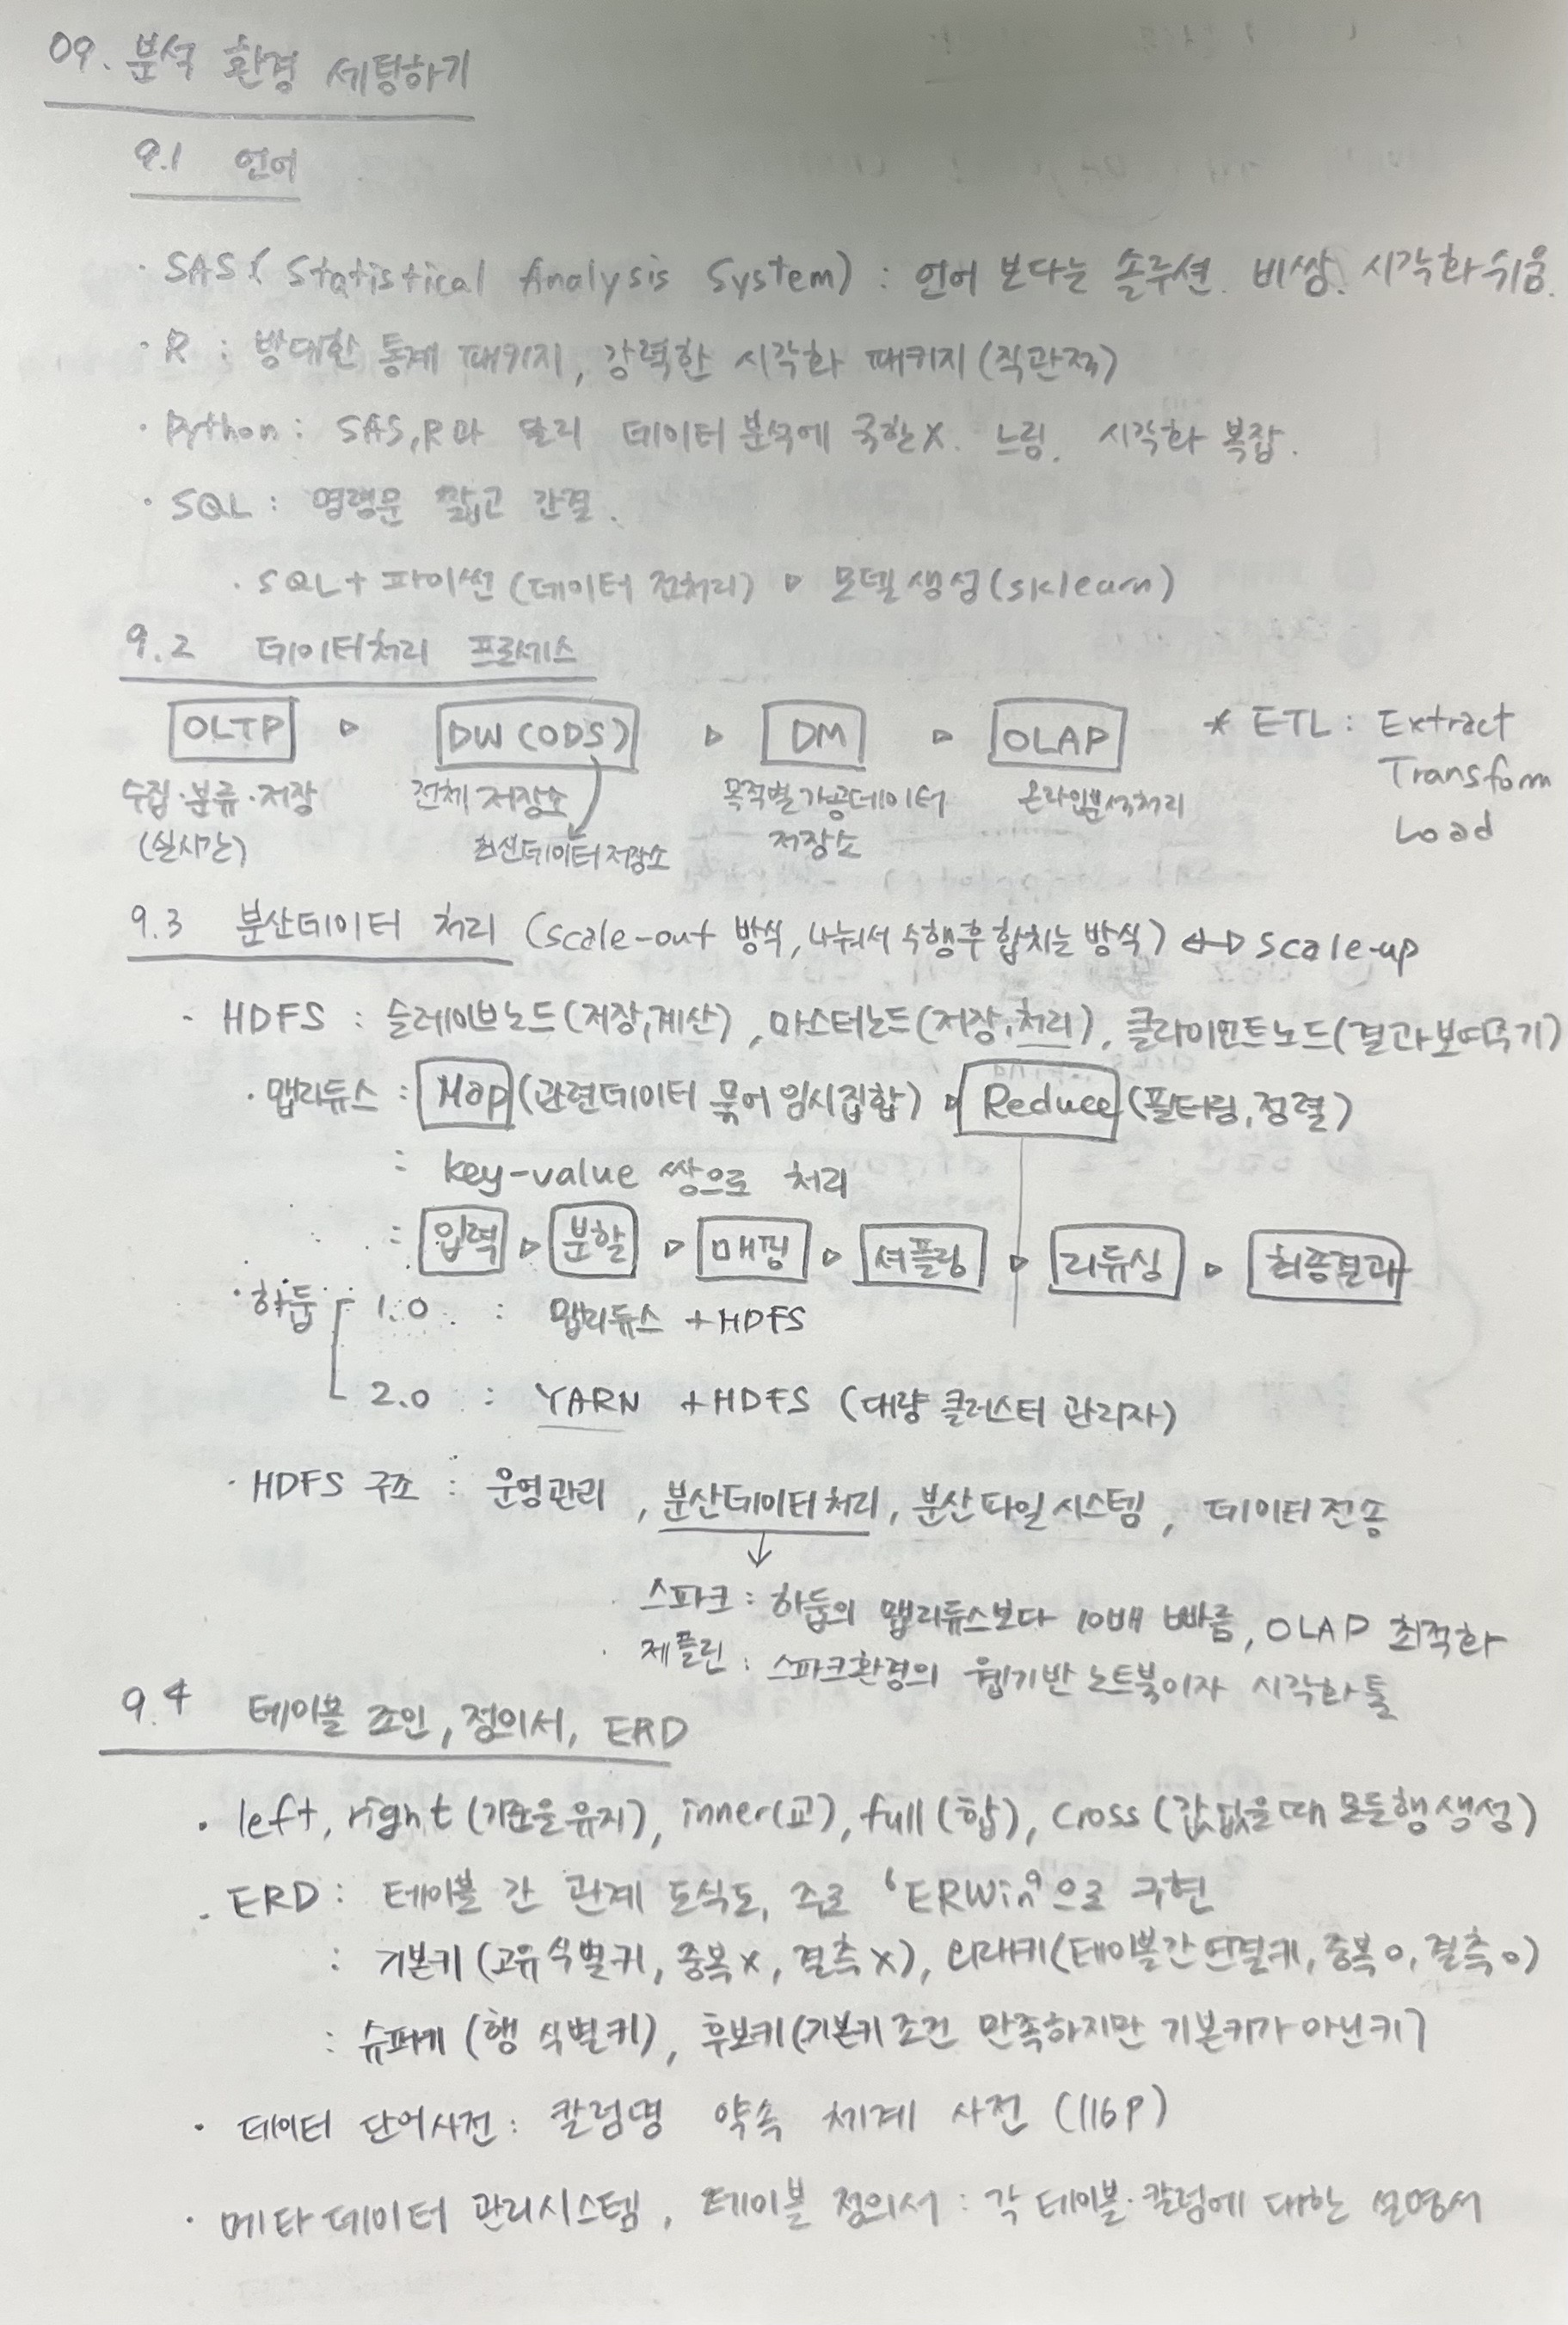 09. 분석 환경 세팅하기
9.1 언어
· SAS ( Statistical Analysis System ) : 언어 보다는 솔루션. 비쌈. 시각화 쉬움.
· R : 방대한 통계 패키지, 강력한 시각화 패키지 (직관적)
· Python : SAS, R과 달리 데이터 분석에 국한 X. 느림. 시각화 복잡.
· SQL : 명령문 짧고 간결.
· SQL + 파이썬 (데이터 전처리) ▷ 모델 생성 (sklearn)
9.2 데이터 처리 프로세스
OLTP ▷ DW (ODS) ▷ DM ▷ OLAP * ETL : Extract
Transform
Load
수집·분류·저장 전체 저장소 목적별 가공데이터 온라인분석처리
(실시간) 최신데이터 저장소 저장소
9.3 분산데이터 처리 (scale-out 방식, 나눠서 수행 후 합치는 방식) ↔ scale-up
· HDFS : 슬레이브노드(저장,계산), 마스터노드(저장,처리), 클라이언트노드(결과보여주기)
· 맵리듀스 : Map (관련데이터 묶어 임시집합) ▷ Reduce (필터링, 정렬)
: key-value 쌍으로 처리
: 입력 ▷ 분할 ▷ 매핑 ▷ 셔플링 ▷ 리듀싱 ▷ 최종결과
· 하둡 1.0 : 맵리듀스 + HDFS
2.0 : YARN + HDFS (대량 클러스터 관리자)
· HDFS 구조 : 운영관리, 분산데이터처리, 분산파일시스템, 데이터 전송
↓
· 스파크 : 하둡의 맵리듀스보다 10배 빠름, OLAP 최적화
· 제플린 : 스파크환경의 웹기반 노트북이자 시각화 툴
9.4 테이블 조인, 정의서, ERD
· left, right (기준을 유지), inner(교), full (합), cross (값 없을 때 모든행 생성)
· ERD : 테이블 간 관계 도식도, 주로 'ERWin'으로 구현
: 기본키 (고유 식별키, 중복 x, 결측 x), 외래키(테이블간 연결키, 중복 o, 결측 o)
: 슈퍼키 (행 식별키), 후보키 (기본키 조건 만족하지만 기본키가 아닌키)
· 데이터 단어사전 : 칼럼명 약속 체계 사전 (116p)
· 메타 데이터 관리시스템, 테이블 정의서 : 각 테이블·칼럼에 대한 설명서